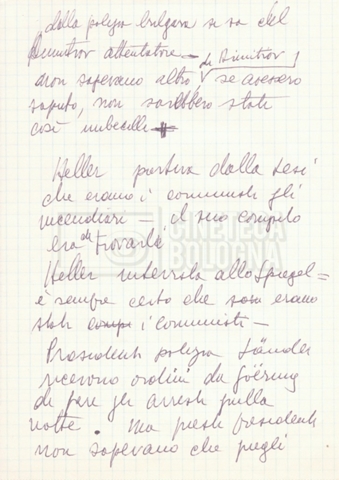 dalla polizia bulgara si sa del
Dimitrov attentatore –
di Dimitrov
non sapevano altro se avessero
saputo, non sarebbero stati
così imbecilli
Heller partiva dalla tesi
che erano i comunisti gli
incendiari – il suo compito
era di trovarla
Heller intervista allo Spiegel =
è sempre certo che sono erano
stati i comunisti –
Presidenti polizia Länder
ricevono ordini da Göring
di fare gli arresti nella
notte. Ma questi presidenti
non sapevano che quegli
CINETECA
BOLOGNA